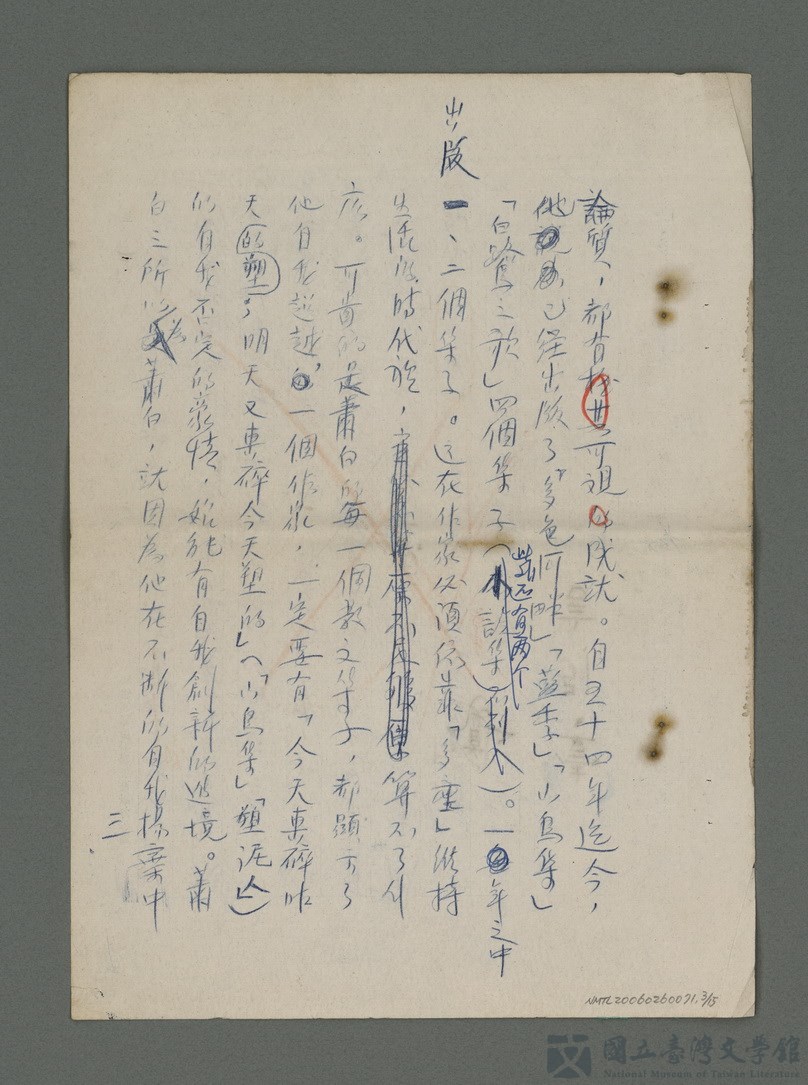 論質，都有極其可觀的成就。自五十四年迄今，
他已經出版了「多色河畔」「藍季」「山鳥集」
「白鷺之歌」四個集子（
詩集
尚还有两个
）。一年之中
出版
一、二個集子。這在作家必須依靠「多產」維持
生活的時代裡，
算不了什
麼。可貴的是蕭白的每一個散文集子，都顯示了
他自我超越，一個作家，一定要有「今天東碎昨
天的塑，明天又東碎今天塑的」（「山鳥集」「塑泥人」）
的自我否定的豪情，始能有自我創新的進境。蕭
白之所以為蕭白，就因為他在不斷的自我揚棄中
三
NMTL20060260071, 3/15
國立臺灣文學館
National Museum of Taiwan Literature